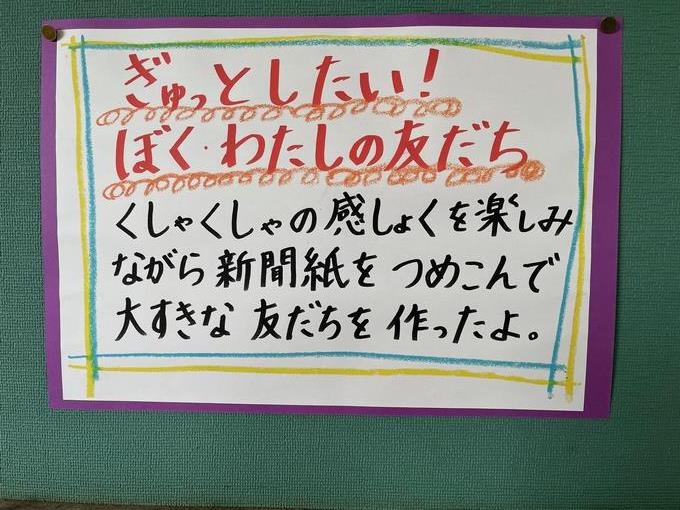 ぎゅっとしたい!
ぼく・わたしの友だち
くしゃくしゃの感しょくを楽しみ
ながら新聞紙をつめこんで
大すきな友だちを作ったよ。